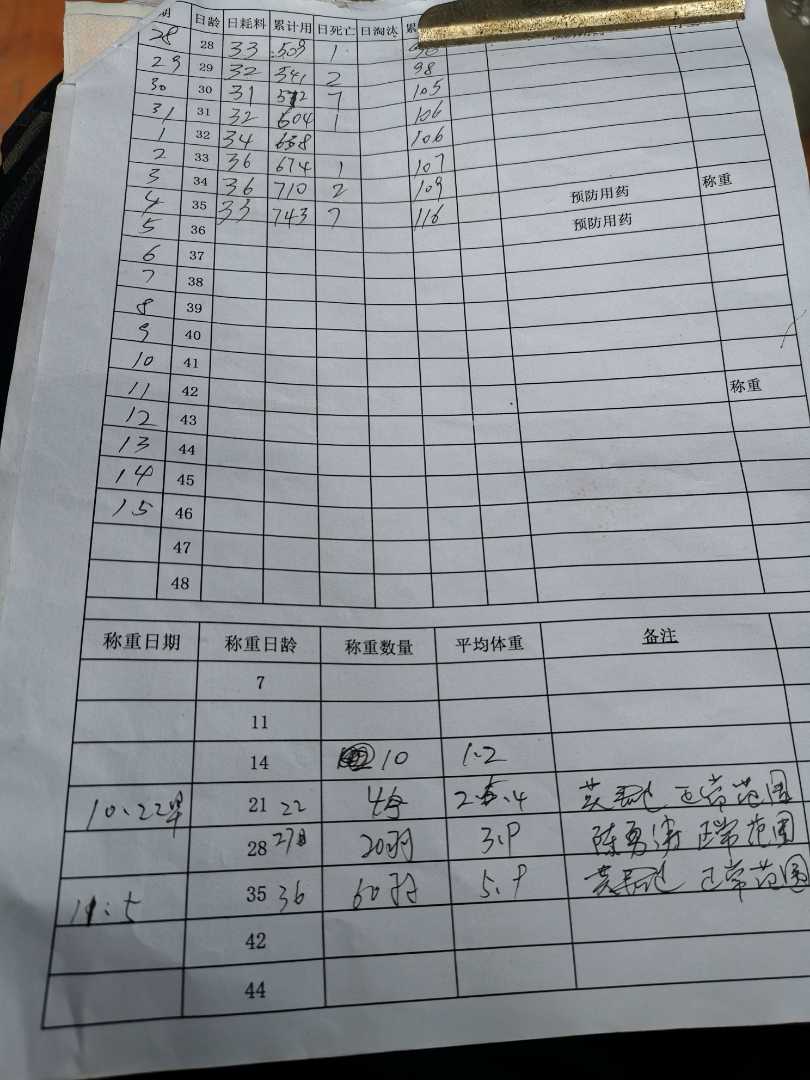 期 日龄 日耗料 累计用 日死亡 日淘汰 累
28 28 33 509 1
29 29 32 541 2 98
30 30 31 572 7 105
31 31 32 604 1 106
1 32 34 638 106
2 33 36 674 1 107
3 34 36 710 2 109 预防用药 称重
4 35 33 743 7 116 预防用药
5 36
6 37
7 38
8 39
9 40
10 41
11 42 称重
12 43
13 44
14 45
15 46
47
48
称重日期 称重日龄 称重数量 平均体重 备注
7
11
14 10 1.2
10、22早 21 22 正常范围
28 27日 20羽 3.9 陈勇 正常范围
11:5 35 36 60羽 5.9 正常范围
42
44